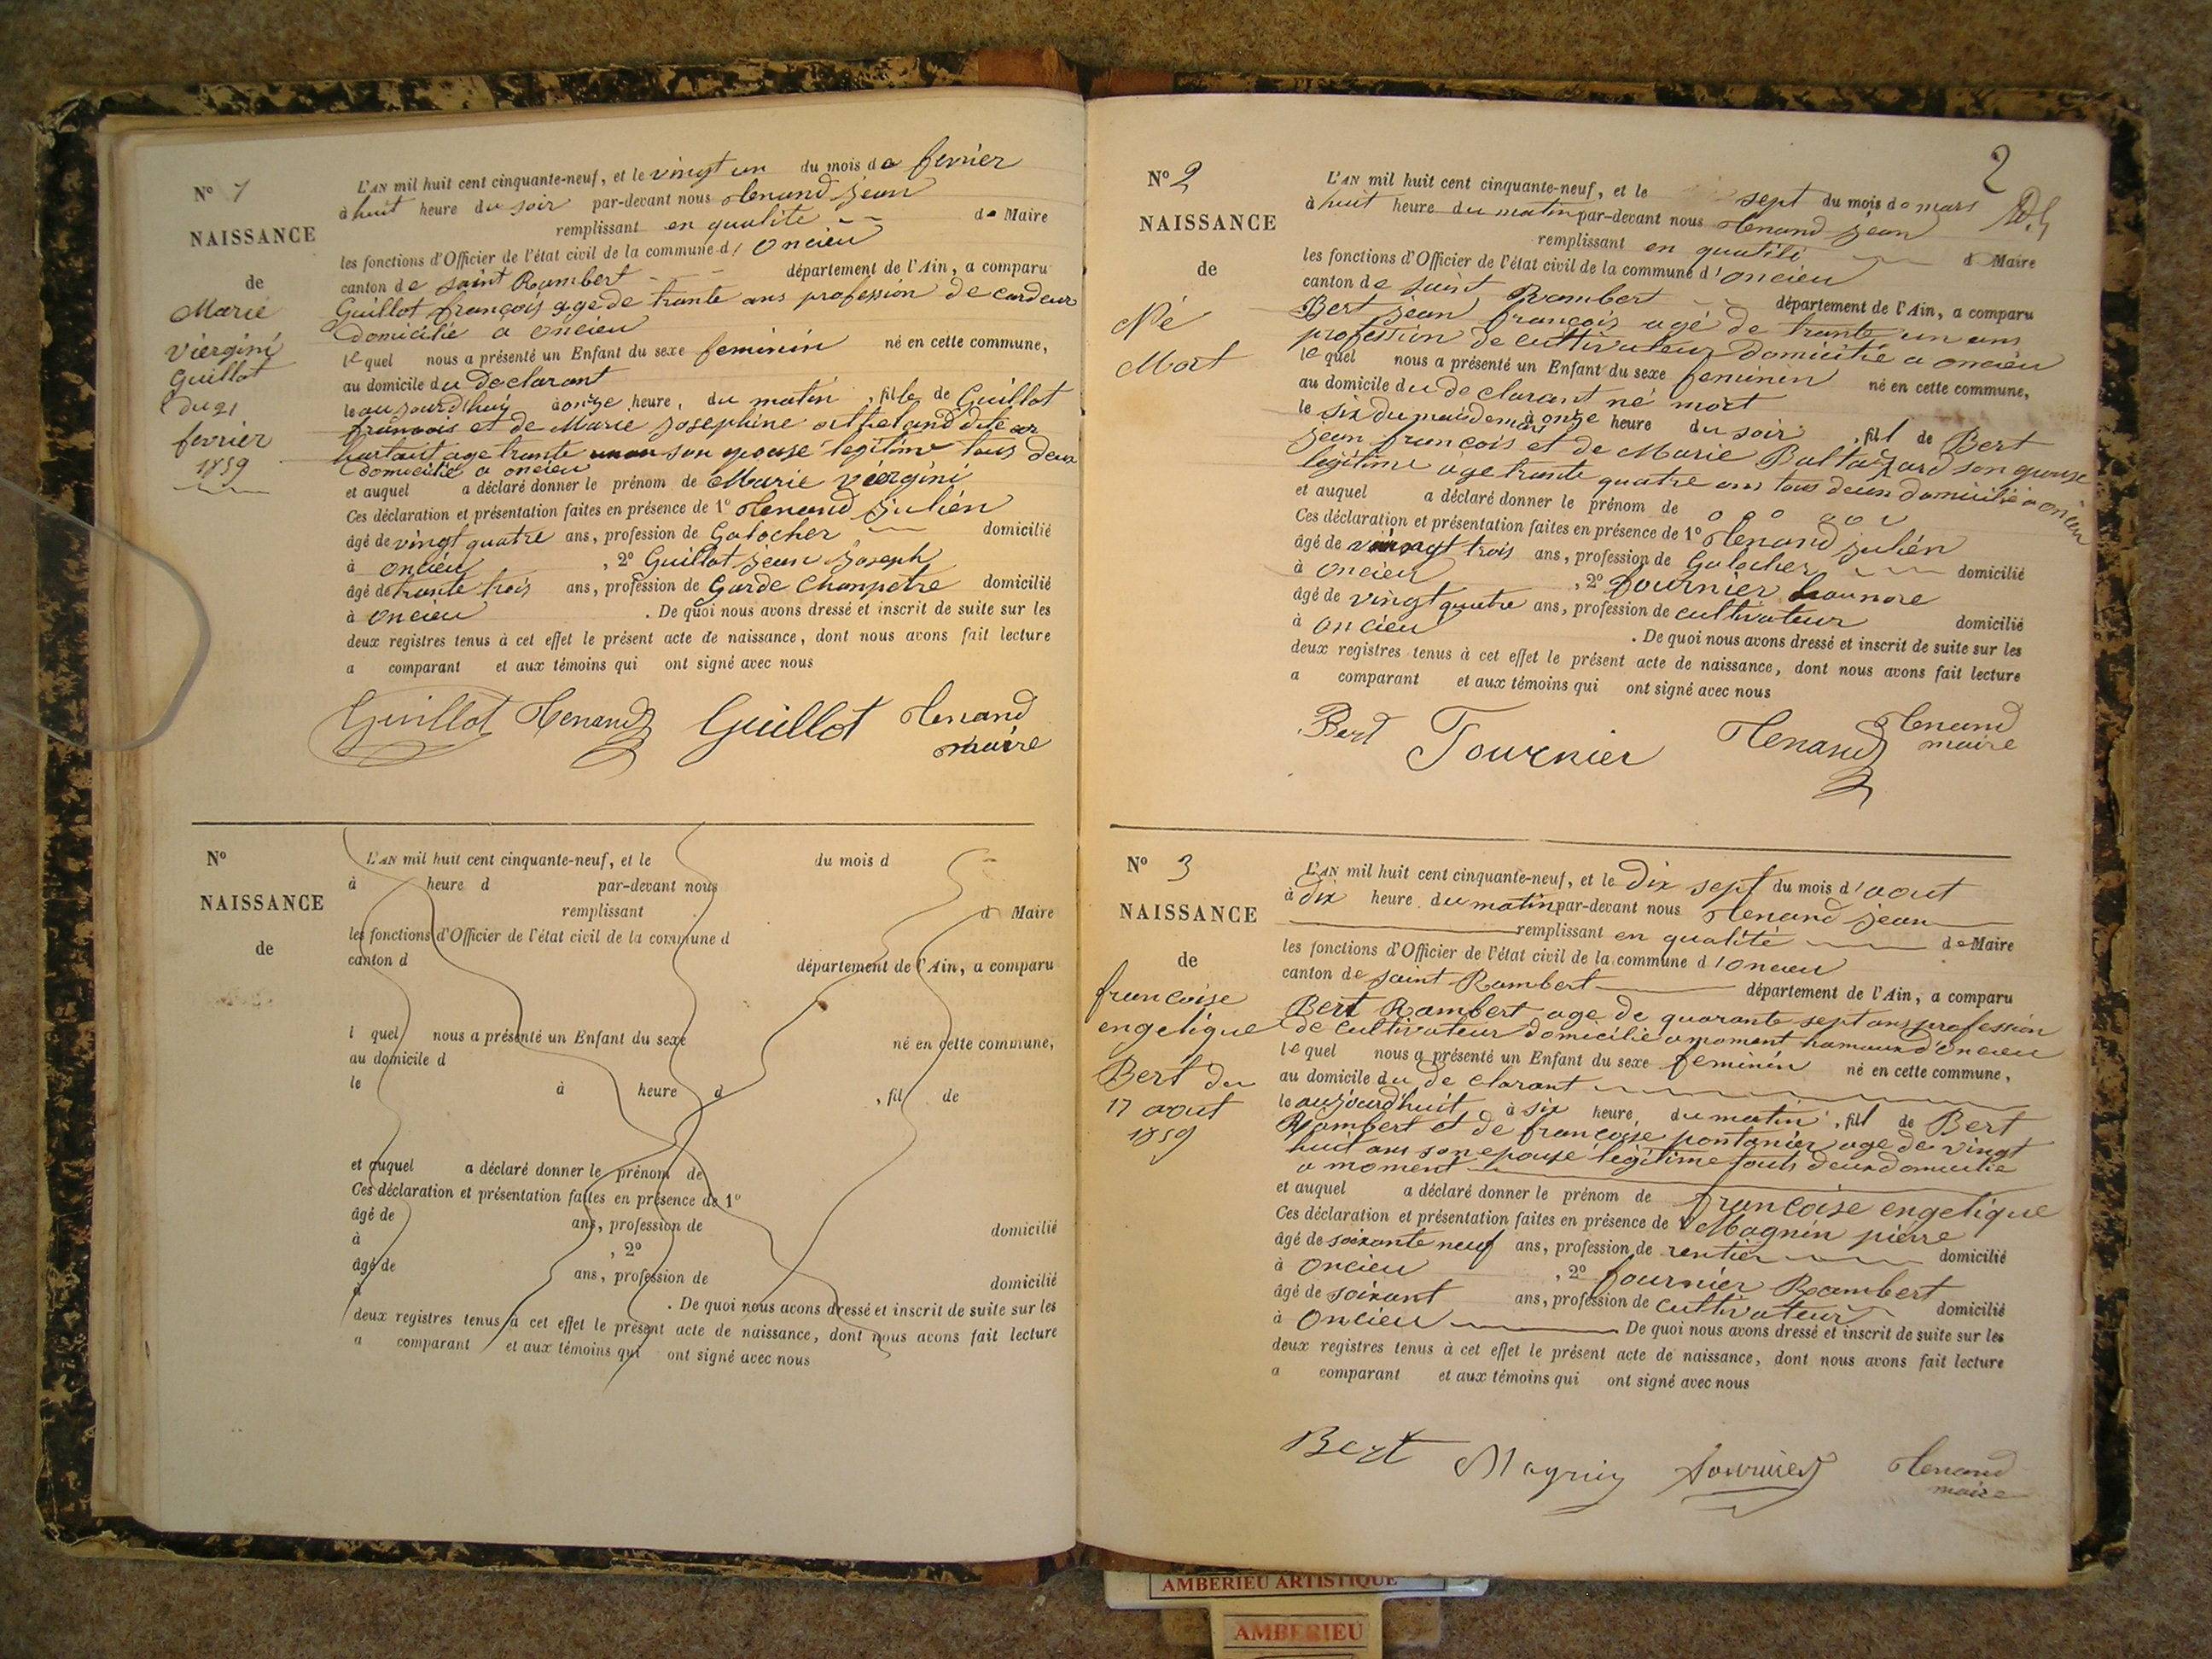 N° 1
NAISSANCE
de
Marie
viergini
Guillot
du 21
fevrier
1859
L'AN mil huit cent cinquante-neuf, et le vingt un du mois de fevrier
à huit heure du soir par-devant nous Tenand jean
remplissant en qualité de Maire
les fonctions d'Officier de l'état civil de la commune d' oncieu
canton de saint Rambert département de l'Ain, a comparu
Guillot françois age de trante ans profession de cardeur
domicilié a oncieu
lequel nous a présenté un Enfant du sexe feminin né en cette commune,
au domicile du declarant
le aujourd'huy à onze heure, du matin, fille de Guillot
francois et de Marie josephine dite
age trante son epouse legitime tous deux
domicilié a oncieu
et auquel a déclaré donner le prénom de Marie viergini
Ces déclaration et présentation faites en présence de 1° Tenand julien
âgé de vingt quatre ans, profession de Galocher domicilié
à oncieu, 2° Guillot jean joseph
âgé de trante trois ans, profession de Garde Champetre domicilié
à oncieu. De quoi nous avons dressé et inscrit de suite sur les
deux registres tenus à cet effet le présent acte de naissance, dont nous avons fait lecture
a comparant et aux témoins qui ont signé avec nous
Guillot Tenand Guillot Tenand
maire
N°
NAISSANCE
de
L'AN mil huit cent cinquante-neuf, et le du mois d
à heure d par-devant nous
remplissant d Maire
les fonctions d'Officier de l'état civil de la commune d
canton d département de l'Ain, a comparu
l quel nous a présenté un Enfant du sexe né en cette commune,
au domicile d
le à heure d , fil de
et auquel a déclaré donner le prénom de
Ces déclaration et présentation faites en présence de 1°
âgé de ans, profession de domicilié
à , 2°
âgé de ans, profession de domicilié
à . De quoi nous avons dressé et inscrit de suite sur les
deux registres tenus à cet effet le présent acte de naissance, dont nous avons fait lecture
a comparant et aux témoins qui ont signé avec nous
2
N° 2
NAISSANCE
de
Né
Mort
L'AN mil huit cent cinquante-neuf, et le sept du mois de mars
à huit heure du matin par-devant nous Tenand jean
remplissant en qualité d Maire
les fonctions d'Officier de l'état civil de la commune d'oncieu
canton de saint Rambert département de l'Ain, a comparu
Bert jean françois agé de trante un ans
profession de cultivateur domicilié a oncieu
lequel nous a présenté un Enfant du sexe feminin né en cette commune,
au domicile du declarant né mort
le six du mois de mars à onze heure du soir, fill de Bert
jean francois et de Marie Baltazard son epouse
legitime age trante quatre ans tous deux domicilié a oncieu
et auquel a déclaré donner le prénom de
Ces déclaration et présentation faites en présence de 1° Tenand julien
âgé de vingt trois ans, profession de Galocher domicilié
à oncieu, 2° fournier
âgé de vingt quatre ans, profession de cultivateur domicilié
à oncieu. De quoi nous avons dressé et inscrit de suite sur les
deux registres tenus à cet effet le présent acte de naissance, dont nous avons fait lecture
a comparant et aux témoins qui ont signé avec nous
Bert Fournier Tenand Tenand
maire
N° 3
NAISSANCE
de
francoise
engelique
Bert du
17 aout
1859
L'AN mil huit cent cinquante-neuf, et le dix sept du mois d'aout
à dix heure du matin par-devant nous Tenand jean
remplissant en qualité de Maire
les fonctions d'Officier de l'état civil de la commune d'oncieu
canton de saint Rambert département de l'Ain, a comparu
Bert Rambert age de quarante sept ans profession
de cultivateur domicilié a moment d'oncieu
lequel nous a présenté un Enfant du sexe feminin né en cette commune,
au domicile du declarant
le aujourd'huit à six heure, du matin, fill de Bert
Rambert et de francoise pontanier age de vingt
huit ans son epouse legitime touts deux domicilie
a moment
et auquel a déclaré donner le prénom de francoise engelique
Ces déclaration et présentation faites en présence de 1° Magnin pierre
âgé de soixante neuf ans, profession de rentier domicilié
à oncieu, 2° fournier Rambert
âgé de soixant ans, profession de cultivateur domicilié
à oncieu De quoi nous avons dressé et inscrit de suite sur les
deux registres tenus à cet effet le présent acte de naissance, dont nous avons fait lecture
a comparant et aux témoins qui ont signé avec nous
Bert Magnin fournier Tenand
maire
AMBERIEU ARTISTIQUE
AMBERIEU